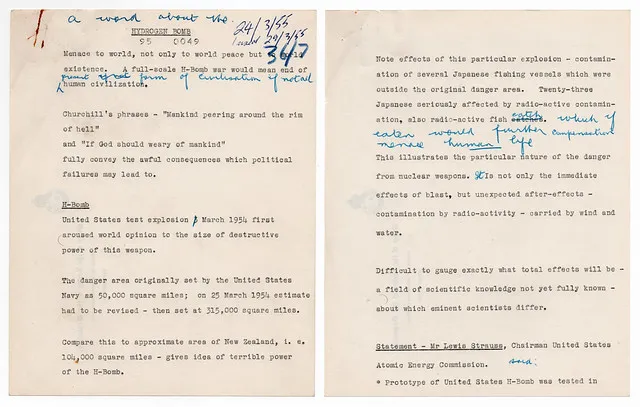 a word about the
HYDROGEN BOMB
95 0049
24/3/55
29/3/55
36/7
Menace to world, not only to world peace but to world
existence. A full-scale H-Bomb war would mean end of
present form of civilisation if not all
human civilization.
Churchill's phrases - "Mankind peering around the rim
of hell"
and "If God should weary of mankind"
fully convey the awful consequences which political
failures may lead to.
H-Bomb
United States test explosion March 1954 first
aroused world opinion to the size of destructive
power of this weapon.
The danger area originally set by the United States
Navy as 50,000 square miles; on 25 March 1954 estimate
had to be revised - then set at 315,000 square miles.
Compare this to approximate area of New Zealand, i. e.
104,000 square miles - gives idea of terrible power
of the H-Bomb.
Note effects of this particular explosion - contamin-
ation of several Japanese fishing vessels which were
outside the original danger area. Twenty-three
Japanese seriously affected by radio-active contamin-
ation, also radio-active fish catch which if
eaten would further compensation
menace human life
This illustrates the particular nature of the danger
from nuclear weapons. It Is not only the immediate
effects of blast, but unexpected after-effects -
contamination by radio-activity - carried by wind and
water.
Difficult to gauge exactly what total effects will be -
a field of scientific knowledge not yet fully known -
about which eminent scientists differ.
Statement - Mr Lewis Strauss, Chairman United States
Atomic Energy Commission. said:
* Prototype of United States H-Bomb was tested in